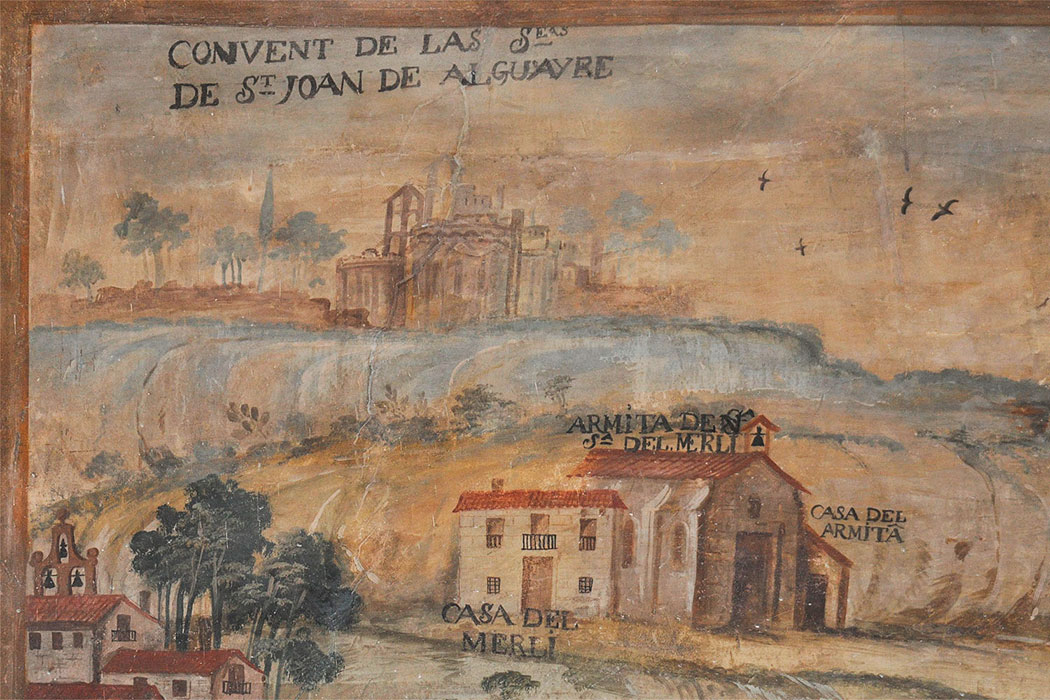 CONVENT DE LAS Sᴱᴬˢ
DE Sᵀ JOAN DE ALGUAYRE
ARMITA DE Nᴬ
Sᴬ DEL MERLI
CASA DEL
ARMITÀ
CASA DEL
MERLI